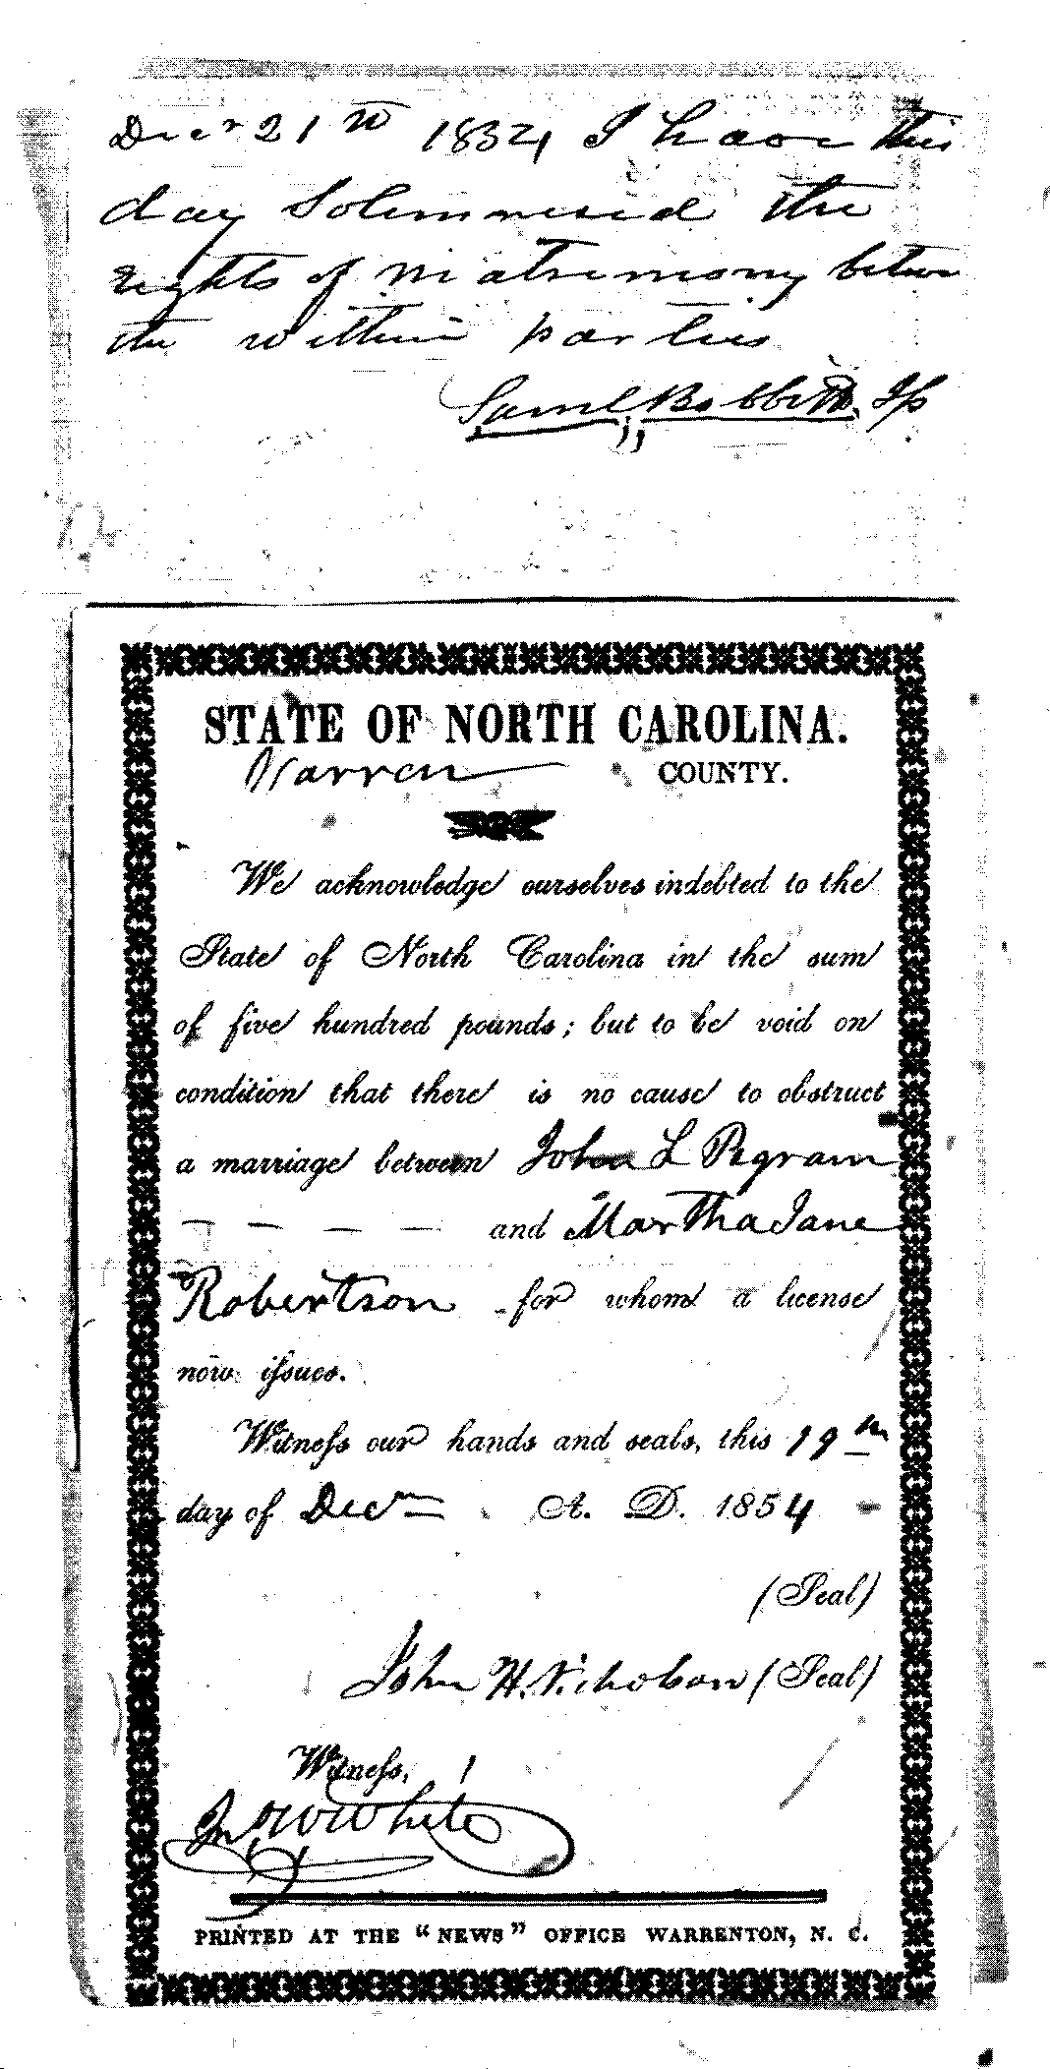 Decr 21st 1854 I have this
day Solemnised the
rights of Matrimony betwn
the within parties
Saml, Bobbitt. Jp
STATE OF NORTH CAROLINA.
Warren COUNTY.
We acknowledge ourselves indebted to the
State of North Carolina in the sum
of five hundred pounds; but to be void on
condition that there is no cause to obstruct
a marriage between John L Pegram
- - - - and Martha Jane
Robertson for whom a license
now issues.
Witness our hands and seals, this 19th
day of Decr A. D. 1854
(Seal)
John H. Nicholson (Seal)
Witness,
Jno W White
PRINTED AT THE "NEWS" OFFICE WARRENTON, N. C.